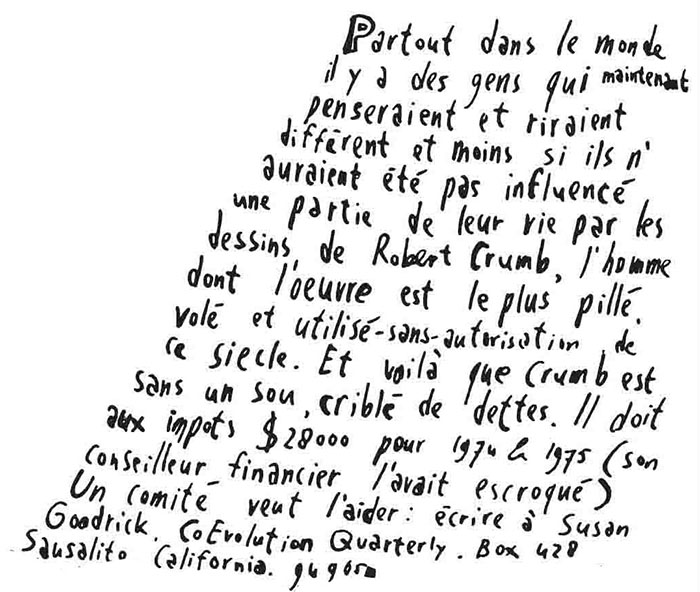 Partout dans le monde
il y a des gens qui maintenant
penseraient et riraient
différent et moins si ils n'
auraient été pas influencé
une partie de leur vie par les
dessins de Robert Crumb, l'homme
dont l'oeuvre est le plus pillé,
volé et utilisé-sans-autorisation de
ce siecle. Et voilà que Crumb est
sans un sou, criblé de dettes. Il doit
aux impots $28000 pour 1974 & 1975 (son
conseilleur financier l'avait escroqué)
Un comité veut l'aider: écrire à Susan
Goodrick. CoEvolution Quarterly. Box 428
Sausalito California. 94965